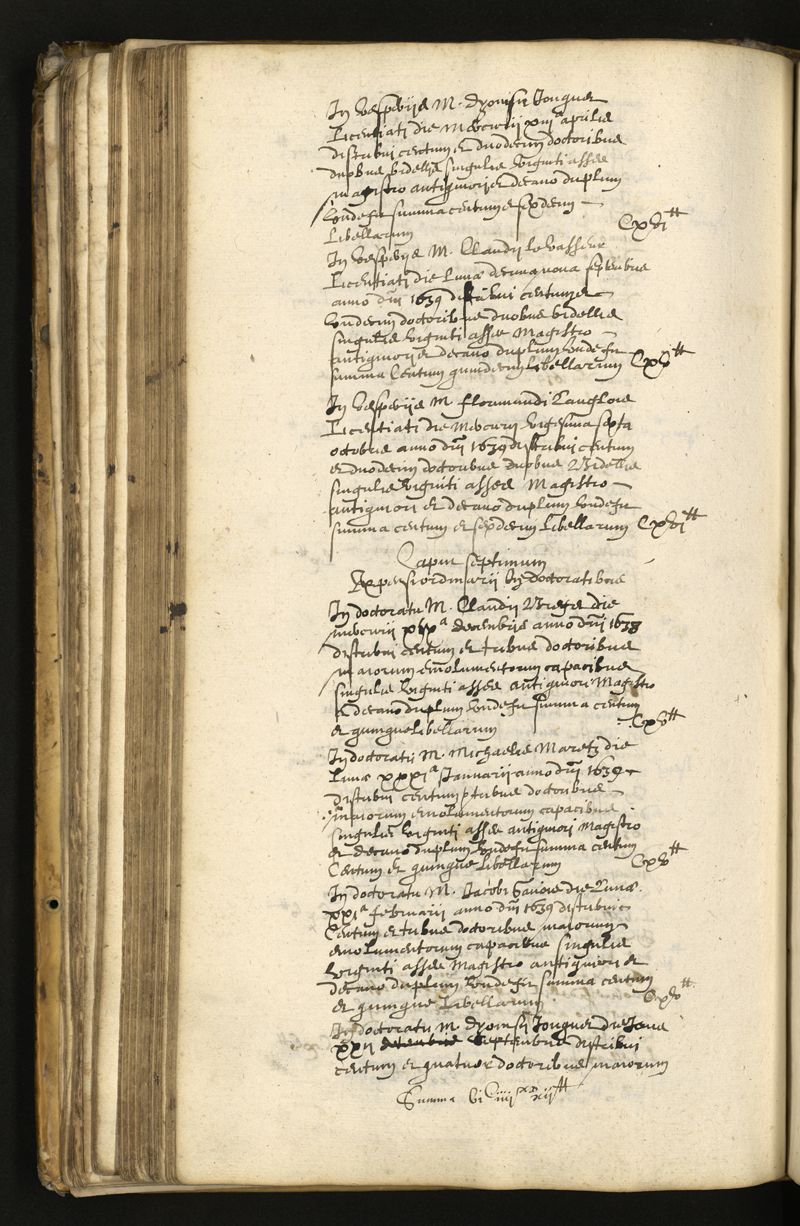 In vesperiis M. Dyonisii Jonquet
Licentiati die mercurii xiiiᵃ aprilis
distribui centum et duodecim doctoribus
duobus bidellis singulis viginti asses
magistro antiquiori et decano duplum
unde fit summa centum et sexdecim
Libellarum CXVI ₶
In vesperiis M. Claudii le vasseur
Licentiati die Lunæ decima nona septembris
anno dñi 1639 distribui centum et
undecim doctoribus duobus bidellis
singulis viginti asses Magistro
antiquiori et decano duplum unde fit
summa Centum quindecim Libellarum CXV ₶
In vesperiis M florimundi Langlois
Licentiati die Mercurii vigesima sexta
octobris anno dñi 1639 distribui centum
et duodecim doctoribus duobus Bidellis
singulis viginti asses Magistro
antiquiori et decano duplum unde fit
summa centum et sexdecim Libellarum CXVI ₶
Caput septimum
Expensi ordinarii In doctoratibus
In doctoratu M. Claudii die
mercurii decembris anno dñi 1638
distribui centum et tribus doctoribus
maiorum emolumentorum capacibus
singulis viginti asses antiquiori Magistro
et decano duplum unde fit summa centum
et quinque Libellarum CV ₶
In doctoratu M. Michaelis Maretz die
Lunæ xxxiᵃ Januarii anno dñi 1639
distribui centum tribus doctoribus
maiorum emolumentorum capacibus
singulis viginti asses antiquiori Magistro
et decano duplum unde fit summa centum
Centum et quinque Libellarum CV ₶
In doctoratu M. Jacobi die Lunæ
xxiᵃ februarii anno dñi 1639 distribui
Centum et tribus doctoribus maiorum
emolumentorum capacibus singulis
viginti asses Magistro antiquiori et
decano duplum unde fit summa centum
et quinque Libellarum CV ₶
In doctoratu M Dyonisii Jonquet die Jovis
xxii septembris distribui
centum et quatuor doctoribus maiorum
Summa